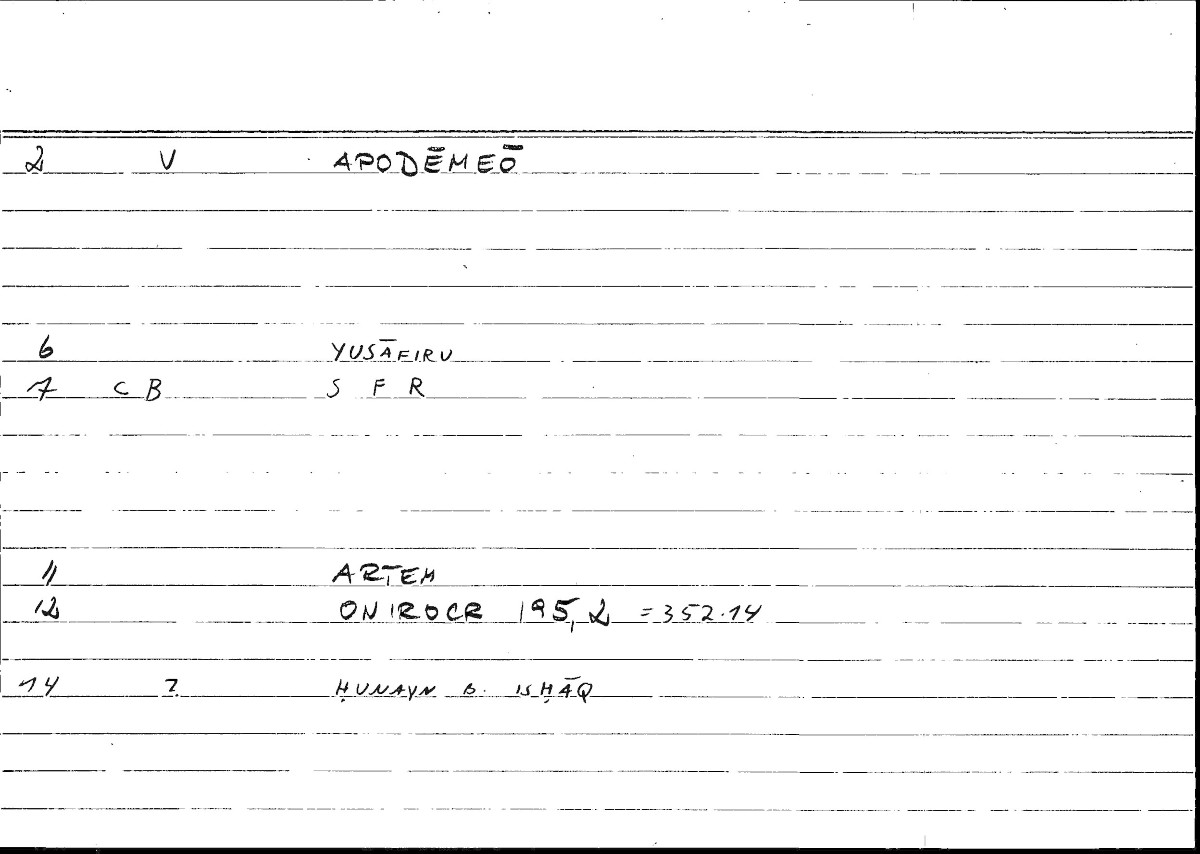 2 V APODĒMEŌ
6 YUSĀFIRU
7 C B S F R
11 ARTEM
12 ONIROCR 195,2 =352.14
14 2 ḤUNAYN B. ISḤĀQ